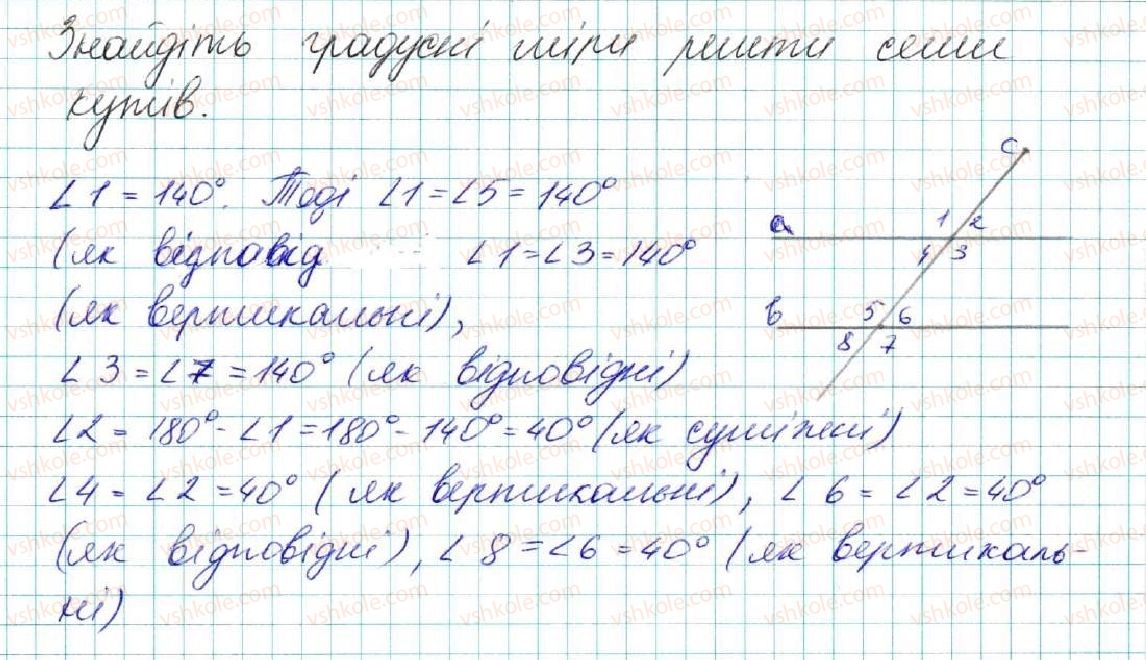 Знайдіть градусні міри решти семи
кутів.
∠1 = 140°. Тоді ∠1 = ∠5 = 140°
(як відповід ∠1 = ∠3 = 140°
(як вертикальні),
∠3 = ∠7 = 140° (як відповідні)
∠2 = 180° - ∠1 = 180° - 140° = 40° (як суміжні)
∠4 = ∠2 = 40° (як вертикальні), ∠6 = ∠2 = 40°
(як відповідні), ∠8 = ∠6 = 40° (як вертикаль-
ні)
c
a 1 2
4 3
b 5 6
8 7
vshkole.com